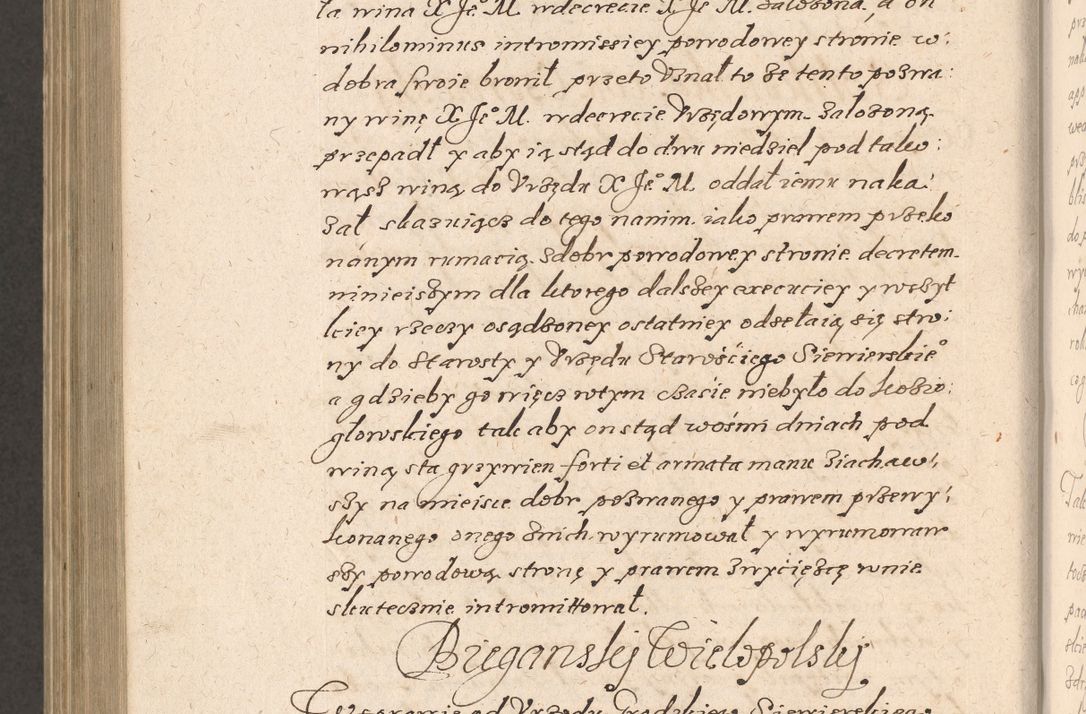 ła wina X Je° M. wdecrecie X Je° M. założona, a on
nihilominus intromissiey powodowey stronie w:
dobra swoie bronił, przeto Uznał to że tento pozwa:
ny winę X Je° M. wdecrecie Urzędowym założoną
przepadł y aby ią stąd do dwu niedziel pod tako:
wąsz winą do Urzędu X Je° M. oddał iemu naka:
zał skazuiącz do tego nanim iako prawem przeko
nánym rumacią zdobr powodowey stronie decretem
ninieiszym dla ktorego dalszey execuciey y wszyt
kiey rzeczy osądzoney ostatniey odsełaią się stro:
ny do Starosty y Urzędu Starośćiego Siewierskie°
a gdzieby go więcz wtym czasie niebyło do Kozio:
głowskiego tak aby on stąd wośmi dniach pod
winą sta grzywien forti et armata manu ziachaw:
szy na mieisce dobr pozwanego y prawem przewy:
konanęgo onego znich wyrumował y wyrumowaw
szy powodową stronę y prawem zwyćięzcę wnie
skutecznie intromittował.
Bieganskÿ Wielopolskÿ
od Urzędu Grodzkiego Siewierskiego